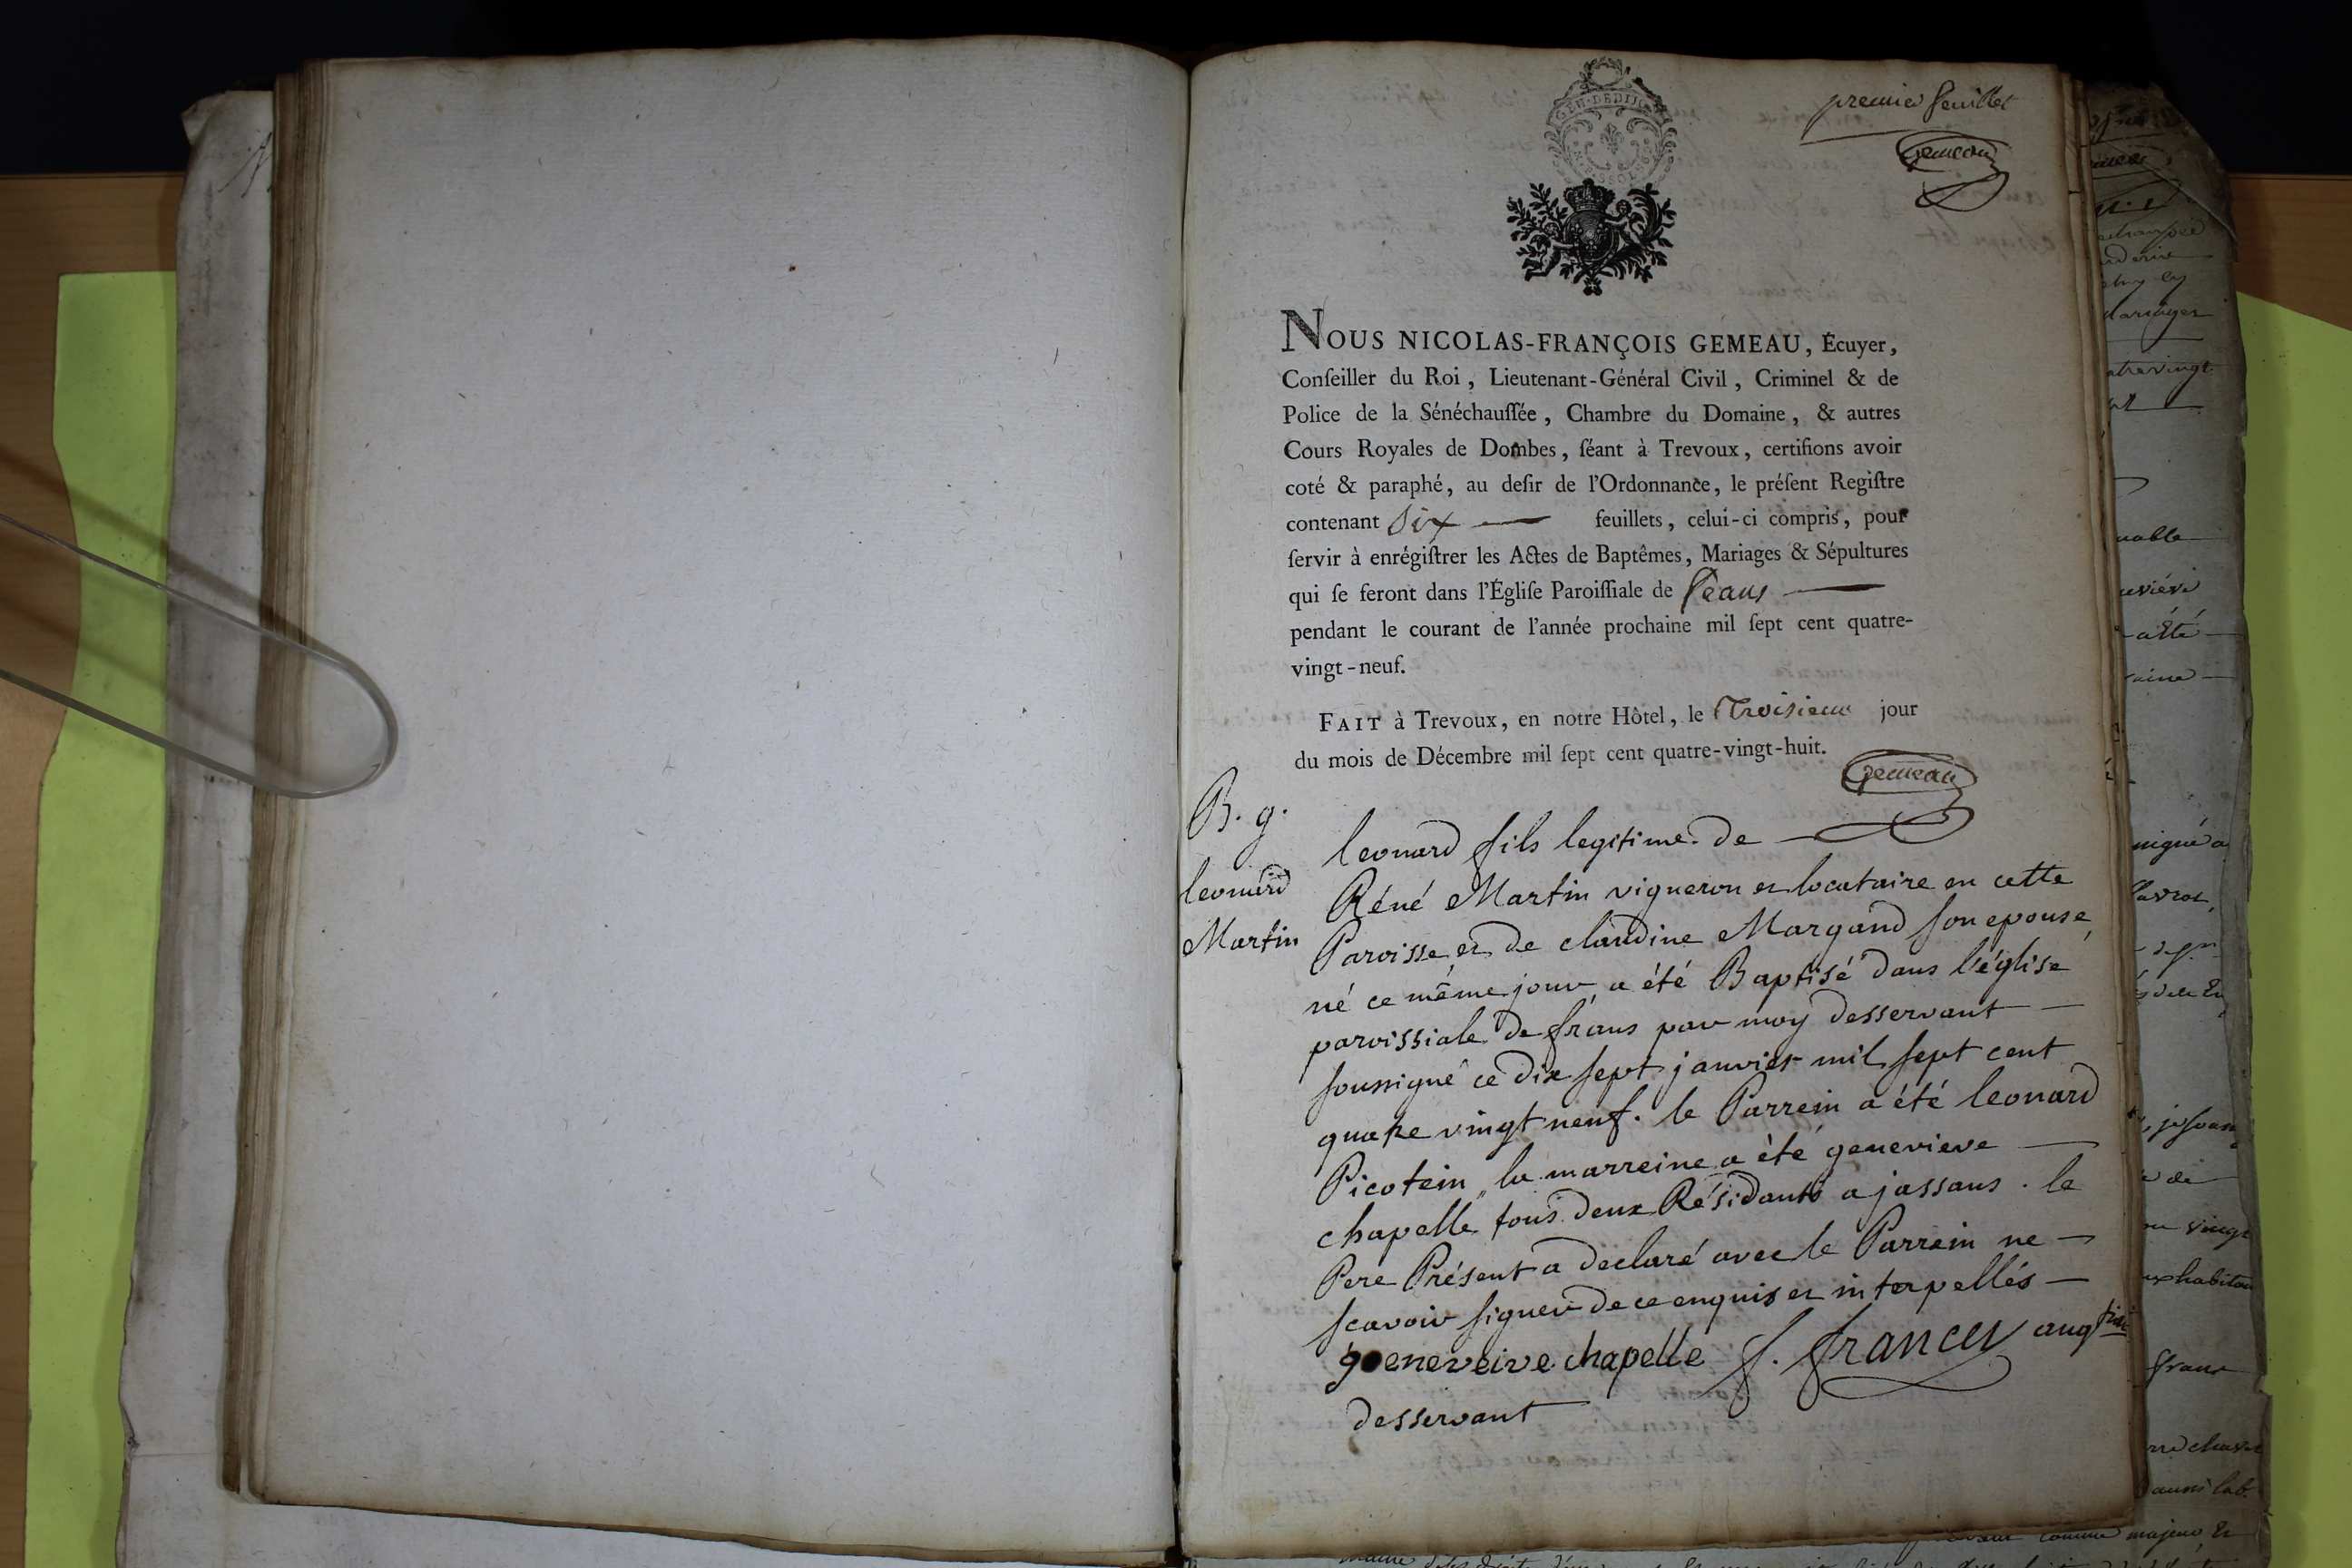 premier feuillet
Gemeau
GEN·DE DIJON
NOUS NICOLAS-FRANÇOIS GEMEAU, Écuyer,
Conſeiller du Roi, Lieutenant-Général Civil, Criminel & de
Police de la Sénéchauſſée, Chambre du Domaine, & autres
Cours Royales de Dombes, ſéant à Trevoux, certifions avoir
coté & paraphé, au deſir de l'Ordonnance, le préſent Regiſtre
contenant Six feuillets, celui-ci compris, pour
ſervir à enrégiſtrer les Actes de Baptêmes, Mariages & Sépultures
qui ſe feront dans l'Égliſe Paroiſſiale de frans
pendant le courant de l'année prochaine mil ſept cent quatre-
vingt-neuf.
FAIT à Trevoux, en notre Hôtel, le Troisieme jour
du mois de Décembre mil ſept cent quatre-vingt-huit.
Gemeau
B. g.
leonard
Martin
leonard fils legitime de
Réné Martin vigneron et locataire en cette
Paroisse et de claudine Margand son epouse,
né ce même jour a été Baptisé dans l'église
paroissiale de frans par moy desservant
soussigné ce dix sept janvier mil sept cent
quatre vingt neuf. le Parrein a été leonard
Picotein, la marreine a été genevieve
chapelle tous deux Résidants a jassans. le
Pere Présent a declaré avec le Parrain ne
scavoir signer de ce enquis et interpellés
geneveive chapelle f. francey aug
desservant